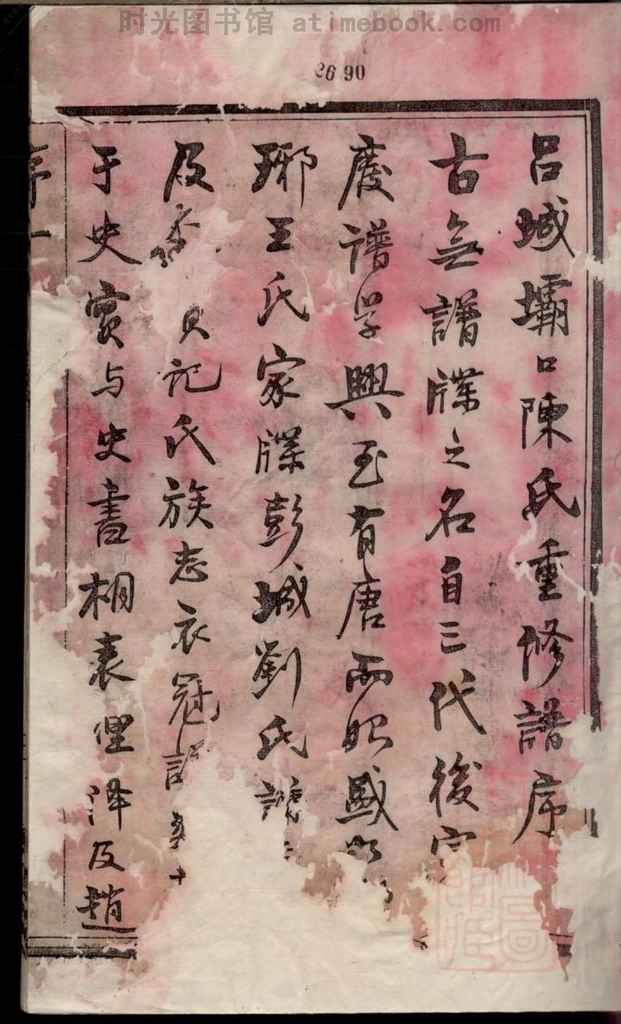 时光图书馆 atimebook.com
2690
吕城壩口陳氏重修譜序
古無譜牒之名自三代後宗
廢譜学興至有唐而始盛
瑯王氏家牒彭城劉氏譜
及 記氏族志衣冠譜 十
于史實与史書相表里泽及趙
序一